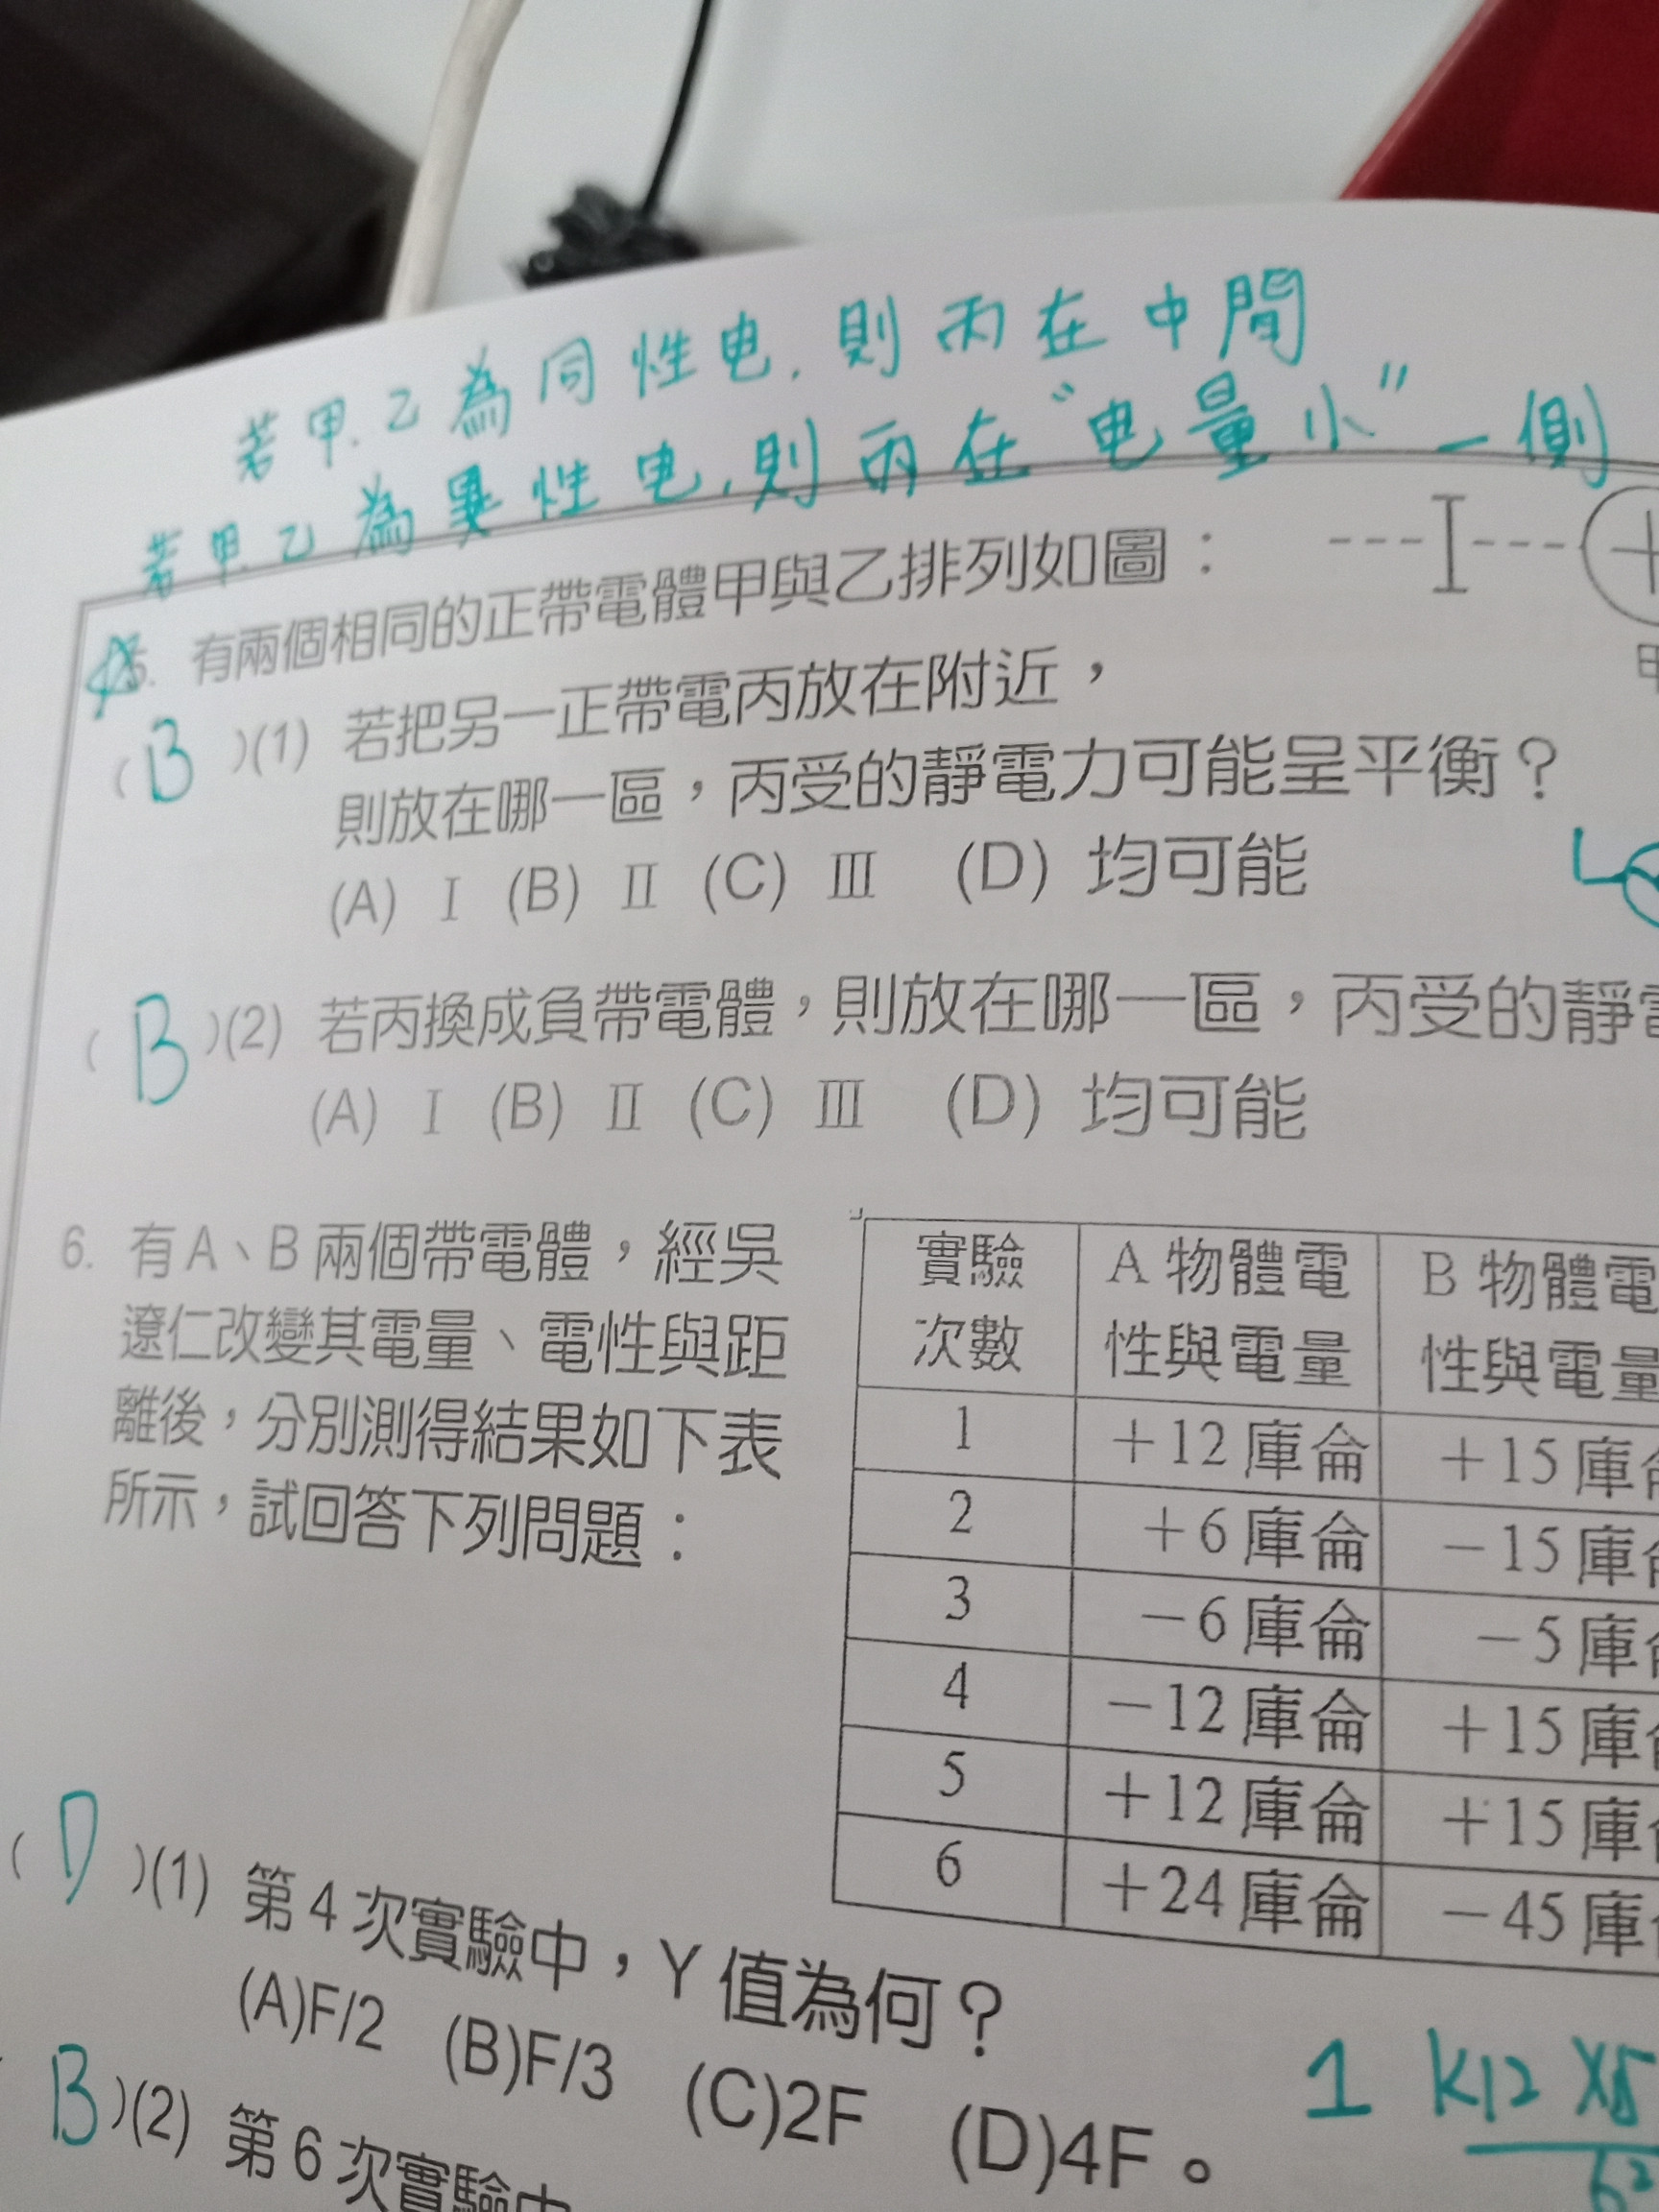 若甲.乙為同性电.則丙在中間
若甲.乙為異性电,則丙在"电量小"一側
5. 有兩個相同的正帶電體甲與乙排列如圖：
I
+
(B)(1) 若把另一正帶電丙放在附近，
則放在哪一區，丙受的靜電力可能呈平衡？
(A) I (B) II (C) III (D) 均可能
(B)(2) 若丙換成負帶電體，則放在哪一區，丙受的靜
(A) I (B) II (C) III (D) 均可能
6. 有A、B兩個帶電體，經吳
遼仁改變其電量、電性與距
離後，分別測得結果如下表
所示，試回答下列問題：
實驗次數 A物體電性與電量 B物體電性與電量
1 +12庫侖 +15庫
2 +6庫侖 -15庫
3 -6庫侖 -5庫
4 -12庫侖 +15庫
5 +12庫侖 +15庫
6 +24庫侖 -45庫
(D)(1) 第4次實驗中，Y值為何？
(A)F/2 (B)F/3 (C)2F (D)4F。
1 K12
B)(2) 第6次實驗中